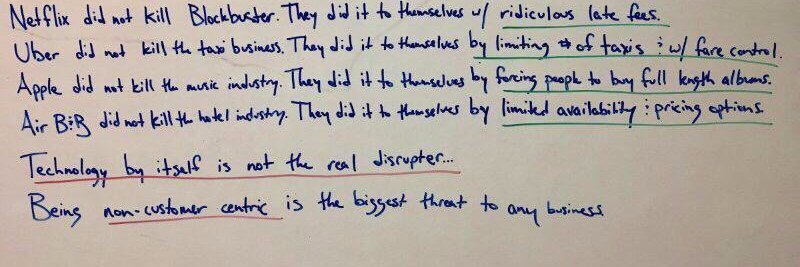 Netflix did not kill Blockbuster. They did it to themselves w/ ridiculous late fees.
Uber did not kill the taxi business. They did it to themselves by limiting # of taxis & w/ fare control.
Apple did not kill the music industry. They did it to themselves by forcing people to buy full length albums.
Air B&B did not kill the hotel industry. They did it to themselves by limited availability & pricing options.
Technology by itself is not the real disrupter...
Being non-customer centric is the biggest threat to any business.